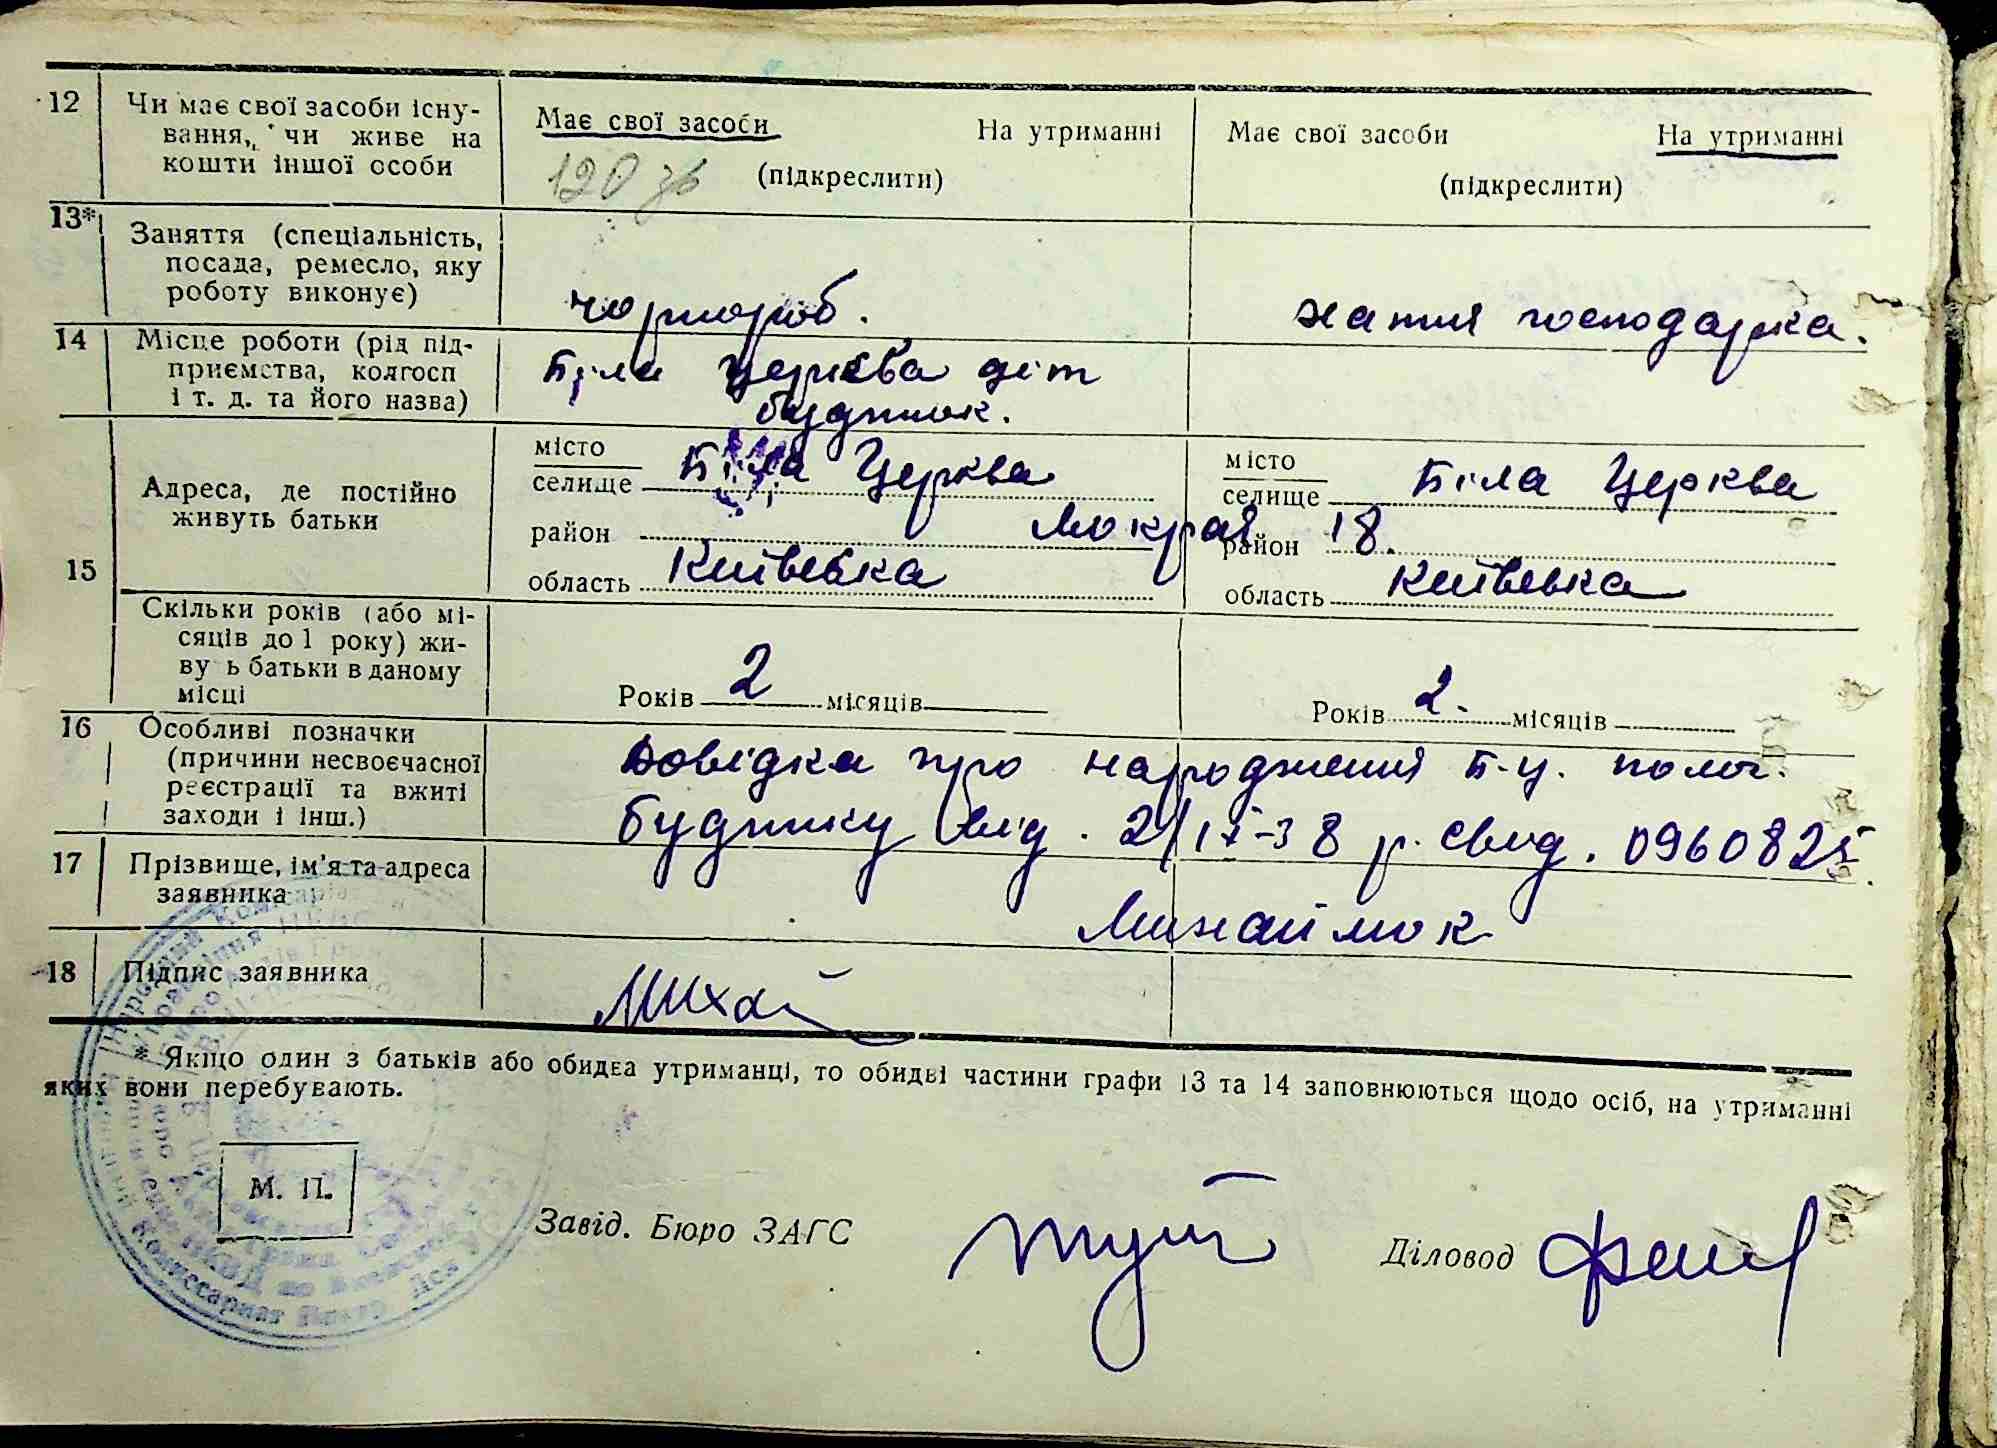 12 Чи має свої засоби існу-
вання, чи живе на
кошти іншої особи
Має свої засоби На утриманні
120 зв (підкреслити)
Має свої засоби На утриманні
(підкреслити)
13* Заняття (спеціальність,
посада, ремесло, яку
роботу виконує)
чорнороб.
хатня господарка.
14 Місце роботи (рід під-
приємства, колгосп
і т. д. та його назва)
Біла Церква діт
будинок.
15 Адреса, де постійно
живуть батьки
місто
селище Біла Церква
район Мокрая 18.
область Київська
місто
селище Біла Церква
район
область Київська
Скільки років (або мі-
сяців до 1 року) жи-
ву ь батьки в даному
місці
Років 2 місяців
Років 2. місяців
16 Особливі позначки
(причини несвоєчасної
реєстрації та вжиті
заходи і інш.)
Довідка про народження Б-Ц. полог.
будинку від. 2/IX-38 р. свид. 0960825
17 Прізвище, ім'я та адреса
заявника
Михайлюк
18 Підпис заявника
Михай
* Якщо один з батьків або обидва утриманці, то обидві частини графи 13 та 14 заповнюються щодо осіб, на утриманні
яких вони перебувають.
М. П.
Завід. Бюро ЗАГС
Діловод